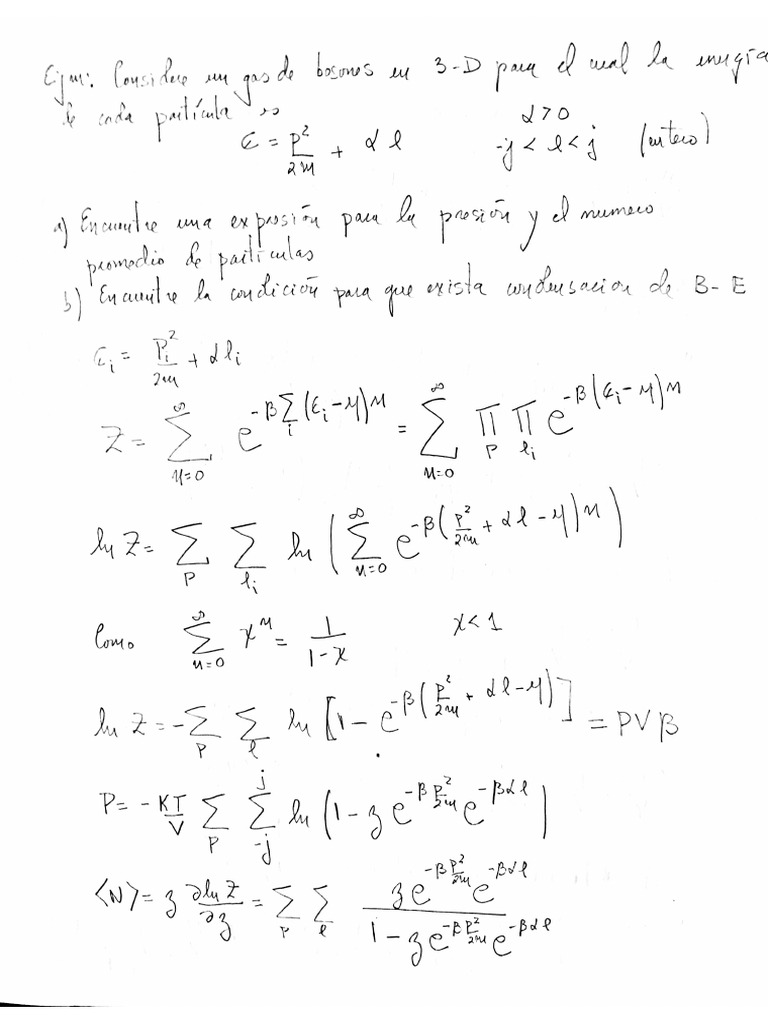 Ejm: Considere un gas de bosones en 3-D para el cual la energía
de cada partícula es
ε = p²/2m + αl    α > 0    -j < l < j (entero)
a) Encuentre una expresión para la presión y el numero
promedio de partículas
b) Encuentre la condición para que exista condensación de B-E
ε_i = p_i²/2m + αl_i
Z = ∑_{n=0}^{∞} e^{-β∑_i(ε_i-μ)n} = ∑_{n=0}^{∞} ∏_p ∏_{l_i} e^{-β(ε_i-μ)n}
ln Z = ∑_p ∑_{l_i} ln(∑_{n=0}^{∞} e^{-β(p²/2m + αl - μ)n})
Como ∑_{n=0}^{∞} x^n = 1/(1-x)    x < 1
ln Z = -∑_p ∑_l ln[1 - e^{-β(p²/2m + αl - μ)}] = PVβ
P = -KT/V ∑_p ∑_{-j}^{j} ln(1 - z e^{-βp²/2m} e^{-βαl})
⟨N⟩ = z ∂ln Z/∂z = ∑_p ∑_l (z e^{-βp²/2m} e^{-βαl})/(1 - z e^{-βp²/2m} e^{-βαl})